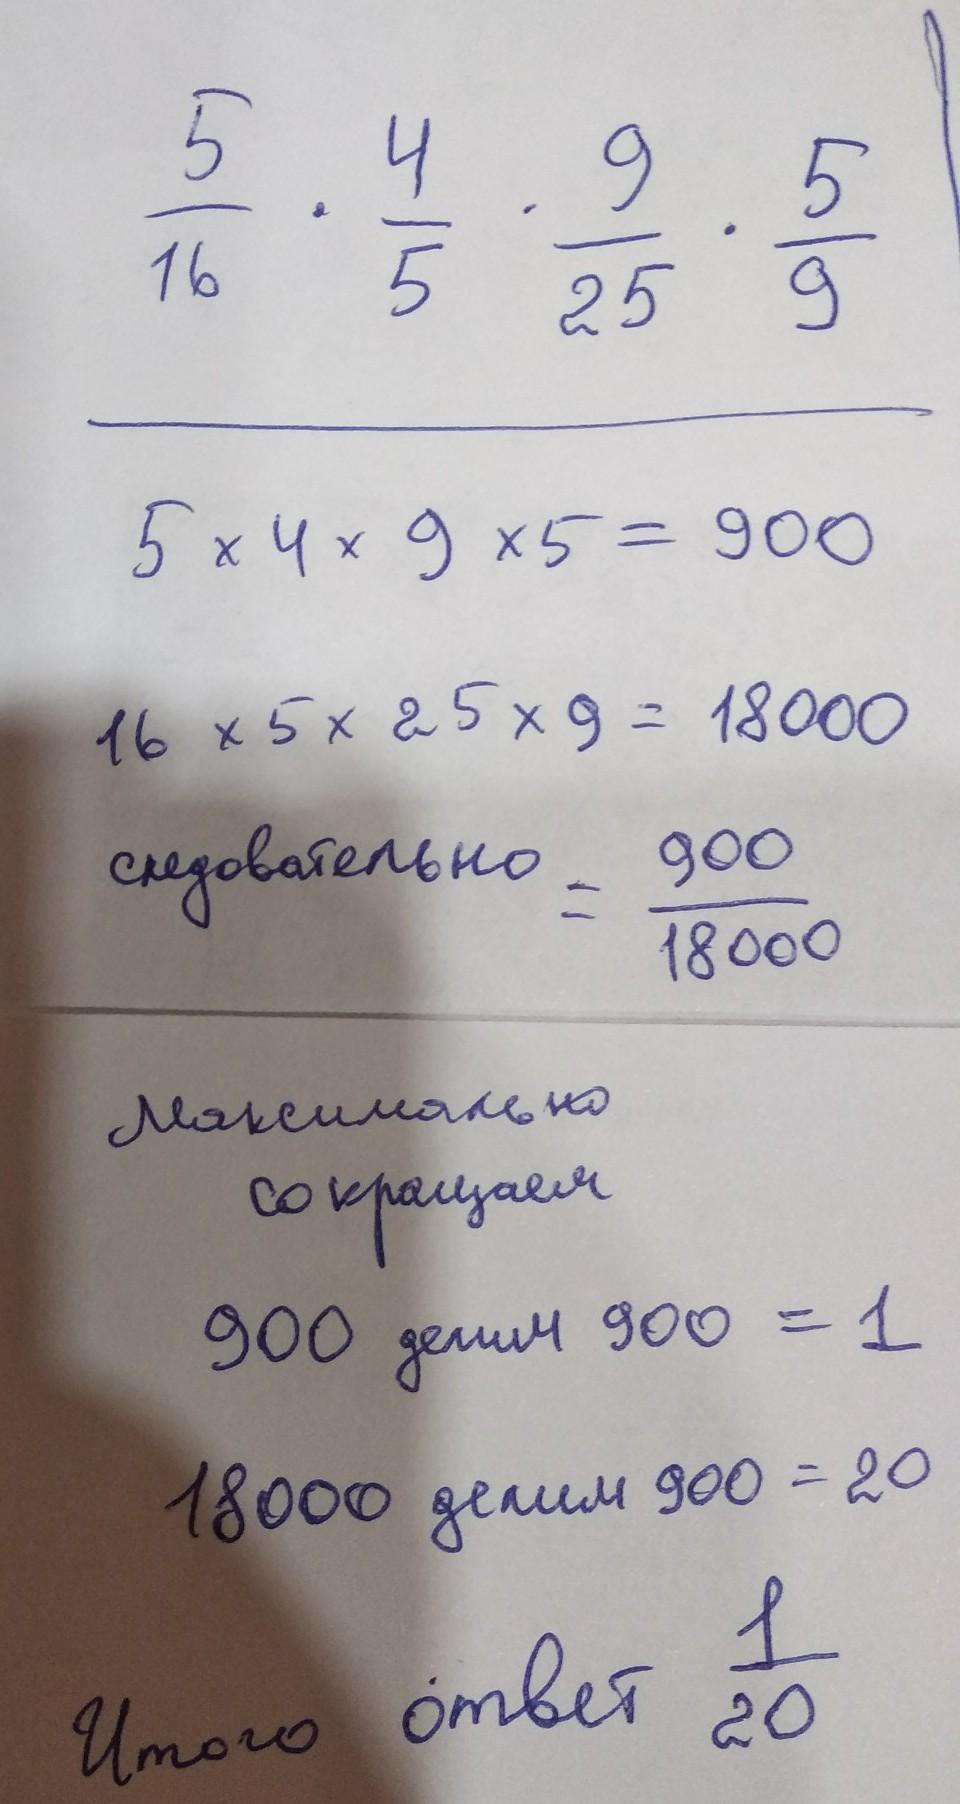 5/16 · 4/5 · 9/25 · 5/9
5 × 4 × 9 × 5 = 900
16 × 5 × 25 × 9 = 18000
следовательно = 900/18000
Максимально
сокращаем
900 делим 900 = 1
18000 делим 900 = 20
Итого ответ 1/20